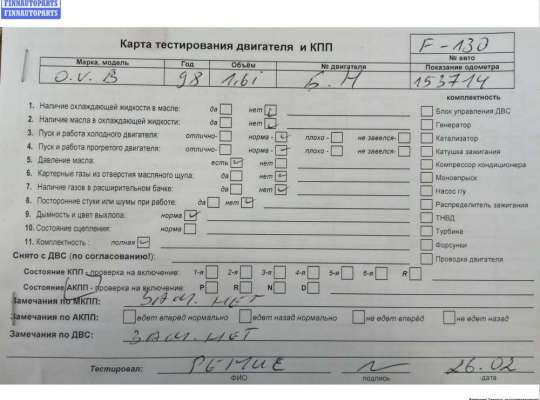 FINNAUTOPARTS
FINNAUTOPARTS
Карта тестирования двигателя и КПП
F-130
№ авто
Марка, модель Год Объём № двигателя Показание одометра
O.V.B 98 1,6i Б.Н 153714
комплектность
1. Наличие охлаждающей жидкости в масле: да нет Блок управления ДВС
2. Наличие масла в охлаждающей жидкости: да нет Генератор
3. Пуск и работа холодного двигателя: отлично- норма - плохо - не завелся- Катализатор
4. Пуск и работа прогретого двигателя: отлично- норма - плохо - не завелся- Катушка зажигания
5. Давление масла: есть нет Компрессор кондиционера
6. Картерные газы из отверстия масляного щупа: да нет Моновпрыск
7. Наличие газов в расширительном бачке: да нет Насос г/у
8. Посторонние стуки или шумы при работе: да нет Распределитель зажигания
9. Дымность и цвет выхлопа: норма ТНВД
10. Состояние сцепления: норма Турбина
11. Комплектность : полная Форсунки
Снято с ДВС (по согласованию!): Проводка двигателя
Состояние КПП - проверка на включение: 1-я 2-я 3-я 4-я 5-я 6-я R
Состояние АКПП - проверка на включение: P R N D
Замечания по МКПП: ЗАМ. НЕТ
Замечания по АКПП: едет вперёд нормально едет назад нормально не едет вперёд не едет назад
Замечания по ДВС: ЗАМ. НЕТ
Тестировал: 26.02
ФИО подпись дата